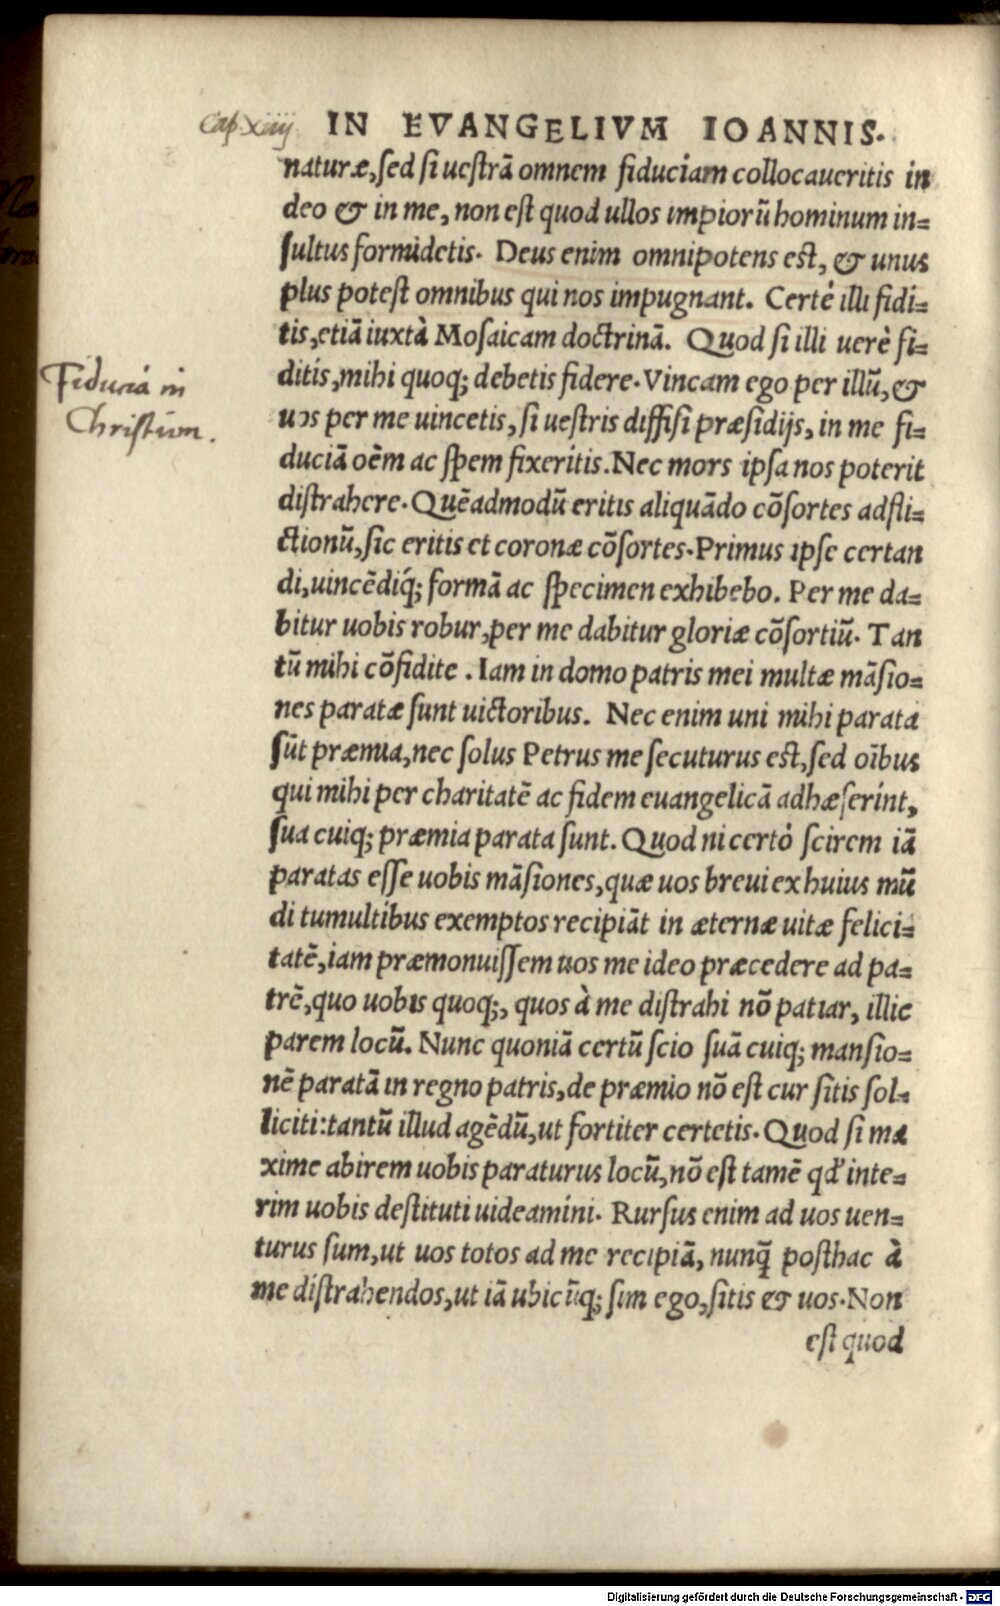 Cap. Xiiij IN EVANGELIVM IOANNIS.
naturæ, sed si uestrã omnem fiduciam collocaueritis in
deo & in me, non est quod ullos impiorũ hominum in=
sultus formidetis. Deus enim omnipotens est, & unus
plus potest omnibus qui nos impugnant. Certè illi fidi=
tis, etiã iuxtà Mosaicam doctrinã. Quod si illi uerè fi=
ditis, mihi quoq; debetis fidere. Vincam ego per illũ, &
Fiducia in
Christum.
uos per me uincetis, si uestris diffisi præsidijs, in me fi=
duciã oẽm ac spem fixeritis. Nec mors ipsa nos poterit
distrahere. Quẽadmodũ eritis aliquãdo cõsortes adfli=
ctionũ, sic eritis et coronæ cõsortes. Primus ipse certan
di, uincẽdiq́; formã ac specimen exhibebo. Per me da=
bitur uobis robur, per me dabitur gloriæ cõsortiũ. Tan
tũ mihi cõfidite. Iam in domo patris mei multæ mãsio=
nes paratæ sunt uictoribus. Nec enim uni mihi parata
sũt præmia, nec solus Petrus me secuturus est, sed oĩbus
qui mihi per charitatẽ ac fidem euangelicã adhæserint,
sua cuiq; præmia parata sunt. Quod ni certò scirem iã
paratas esse uobis mãsiones, quæ uos breui ex huius mũ
di tumultibus exemptos recipiãt in æternæ uitæ felici=
tatẽ, iam præmonuissem uos me ideo præcedere ad pa=
trẽ, quo uobis quoq;, quos à me distrahi nõ patiar, illic
parem locũ. Nunc quoniã certũ scio suã cuiq; mansio=
nẽ paratã in regno patris, de præmio nõ est cur sitis sol=
liciti: tantũ illud agẽdũ, ut fortiter certetis. Quod si ma
xime abirem uobis paraturus locũ, nõ est tamẽ qd' inte=
rim uobis destituti uideamini. Rursus enim ad uos uen=
turus sum, ut uos totos ad me recipiã, nunq̃ posthac à
me distrahendos, ut iã ubicũq; sim ego, sitis & uos. Non
est quod
Digitalisierung gefördert durch die Deutsche Forschungsgemeinschaft - DFG